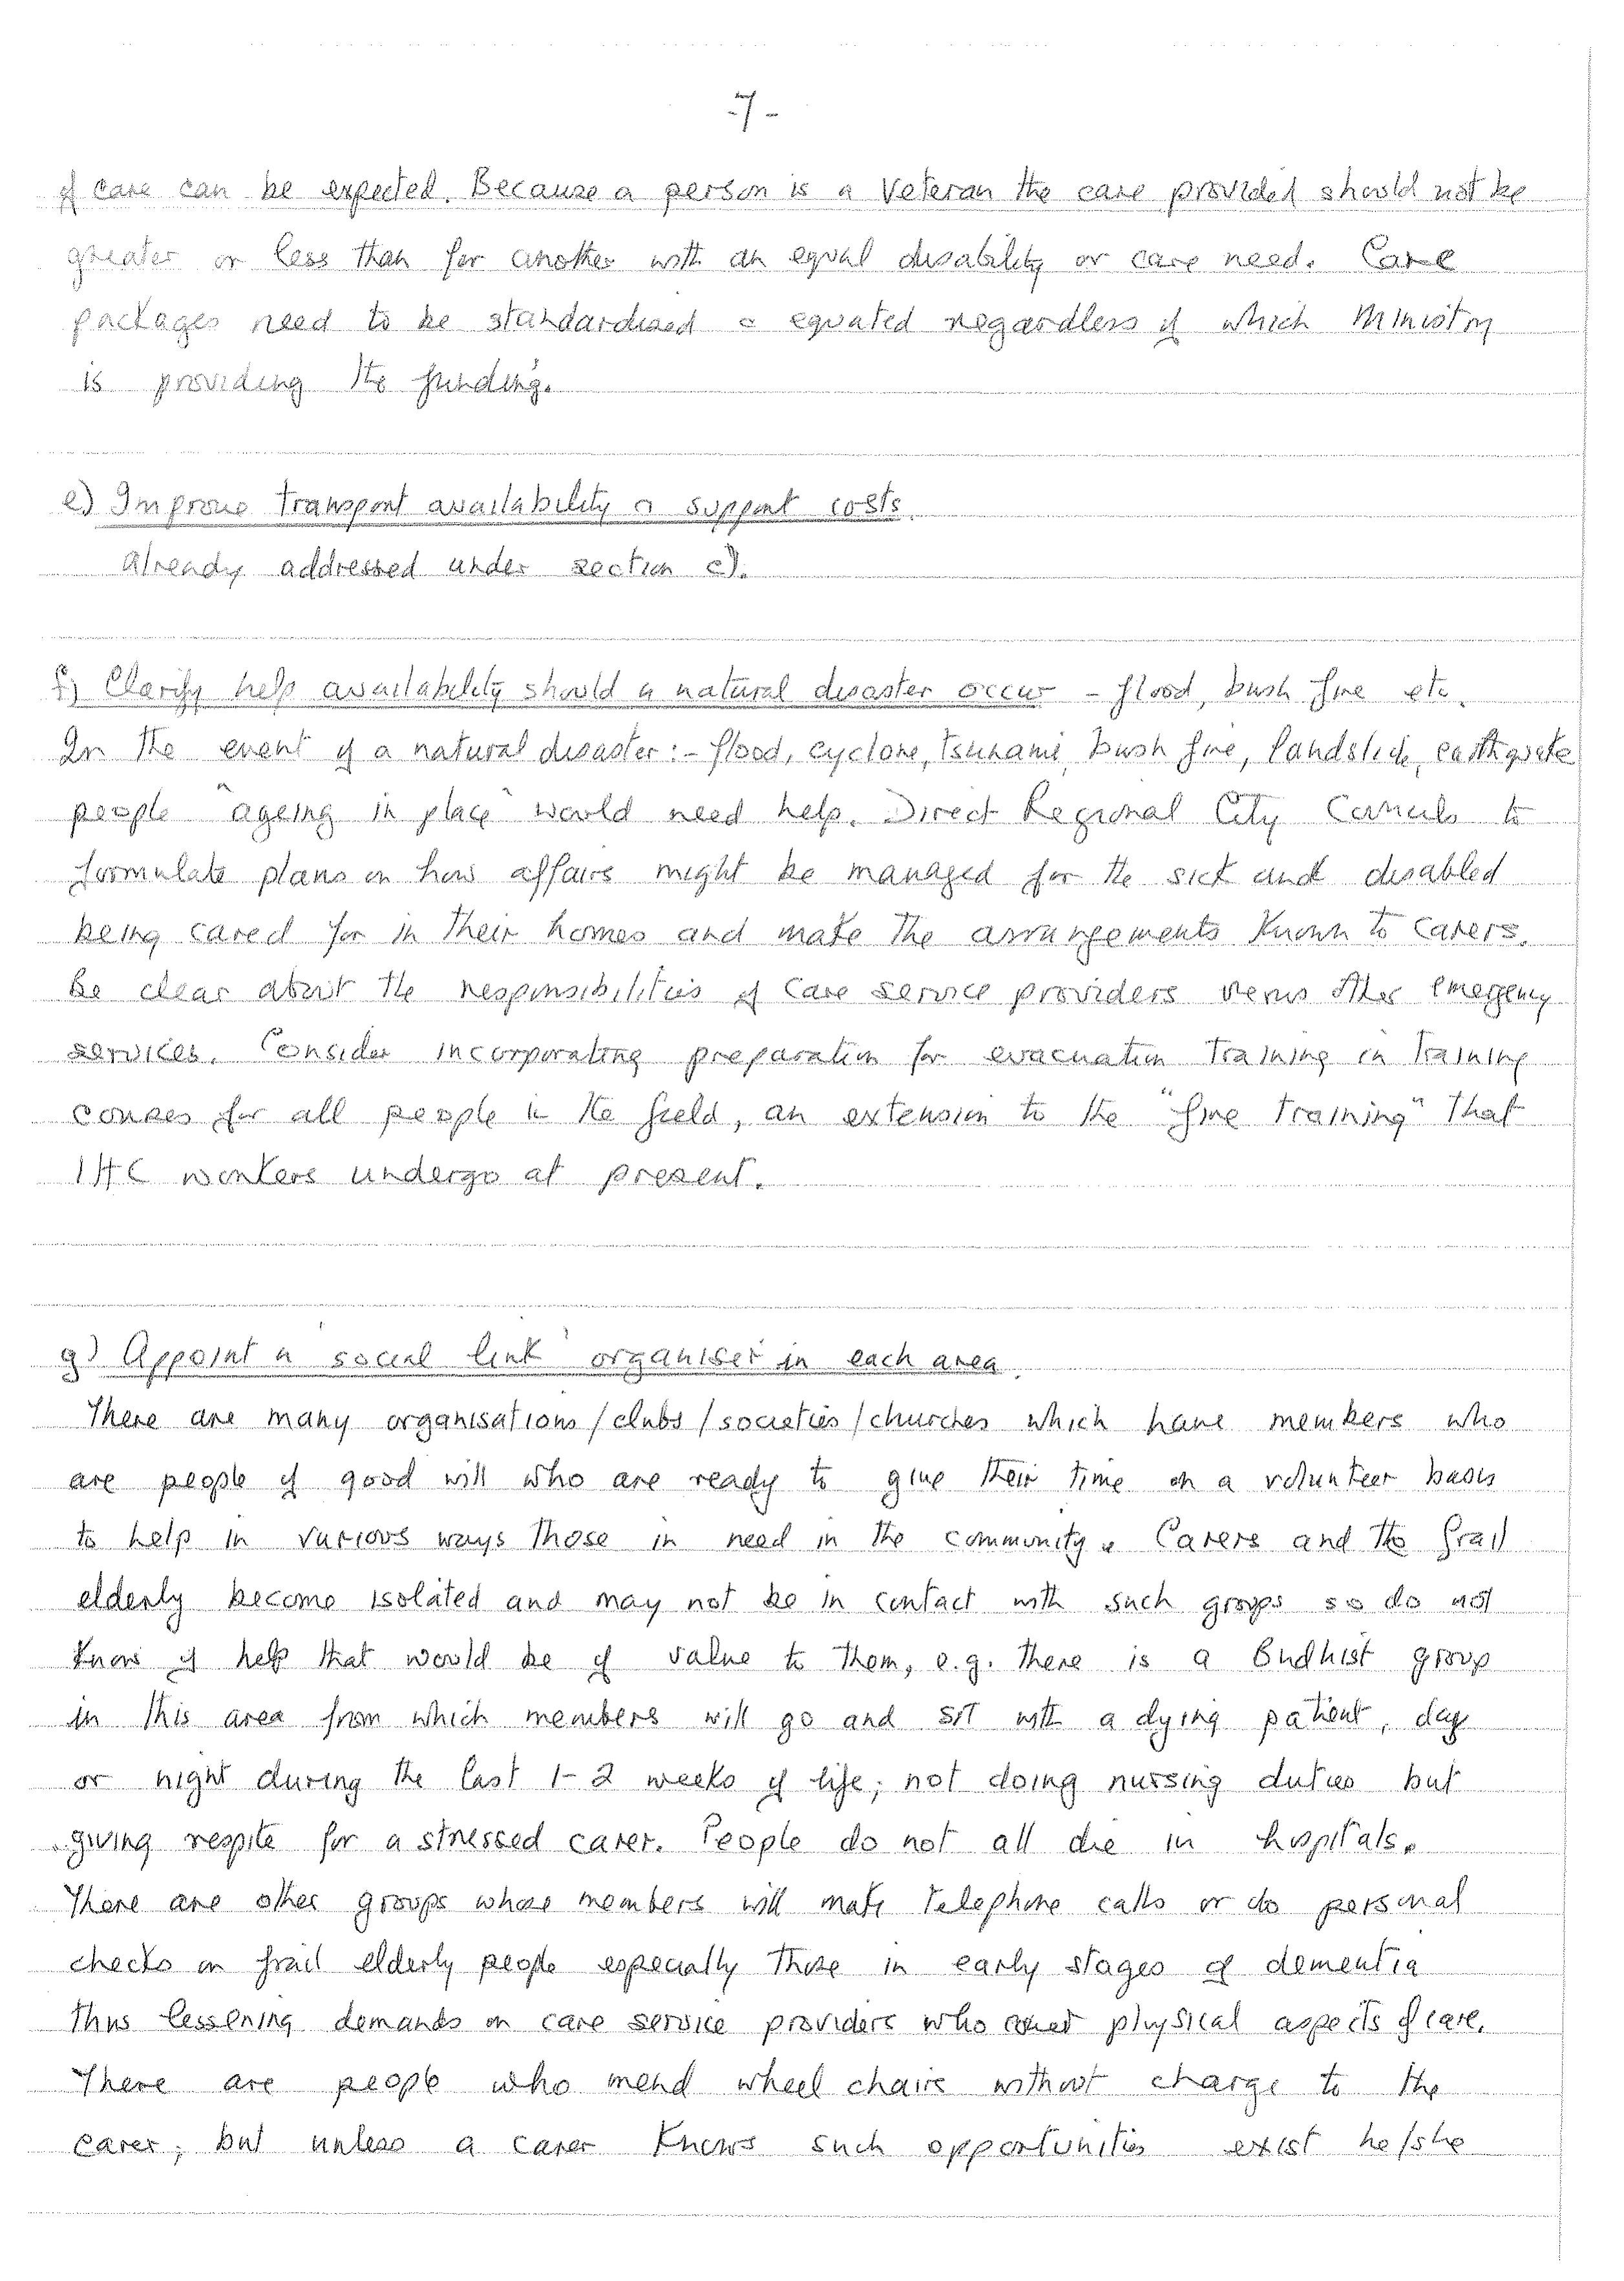 -7-
of care can be expected. Because a person is a Veteran the care provided should not be
greater or less than for another with an equal disability or care need. Care
packages need to be standardised & equated regardless of which Ministry
is providing the funding.
e) Improve Transport availability & support costs.
Already addressed under section c).
f) Clarify help availability should a natural disaster occur - flood, bush fire etc.
In the event of a natural disaster:- flood, cyclone, Tsunami, bush fire, landslide, earthquake
people "ageing in place" would need help. Direct Regional City Councils to
formulate plans on how affairs might be managed for the sick and disabled
being cared for in their homes and make the arrangements known to carers.
Be clear about the responsibilities of care service providers versus other emergency
services. Consider incorporating preparation for evacuation training in training
courses for all people in the field, an extension to the "fire training" that
IHC workers undergo at present.
g) Appoint a 'social link' organiser in each area.
There are many organisations/clubs/societies/churches which have members who
are people of good will who are ready to give their time on a volunteer basis
to help in various ways those in need in the community. Carers and the frail
elderly become isolated and may not be in contact with such groups so do not
know of help that would be of value to them, e.g. there is a Budhist group
in this area from which members will go and sit with a dying patient, day
or night during the last 1-2 weeks of life; not doing nursing duties but
giving respite for a stressed carer. People do not all die in hospitals.
There are other groups whose members will make telephone calls or do personal
checks on frail elderly people especially those in early stages of dementia
thus lessening demands on care service providers who cover physical aspects of care.
There are people who mend wheel chairs without charge to the
carer; but unless a carer knows such opportunities exist he/she